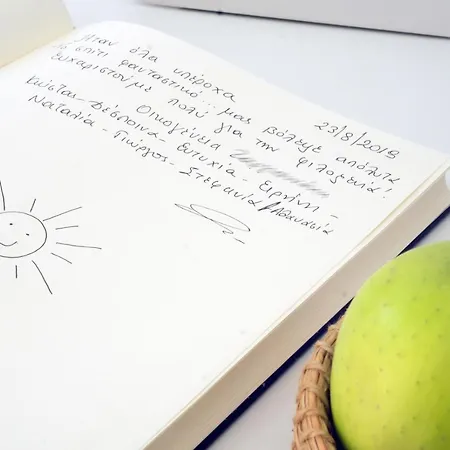 23/8/2018
Ήταν όλα υπέροχα
το σπίτι φανταστικό... μας βόλεψε απόλυτα
Ευχαριστούμε πολύ για την φιλοξενία!
Οικογένεια
Κώστας - Δέσποινα - Ευτυχία - Ειρήνη -
Ναταλία - Γιώργος - Στεφανία Αθανασία